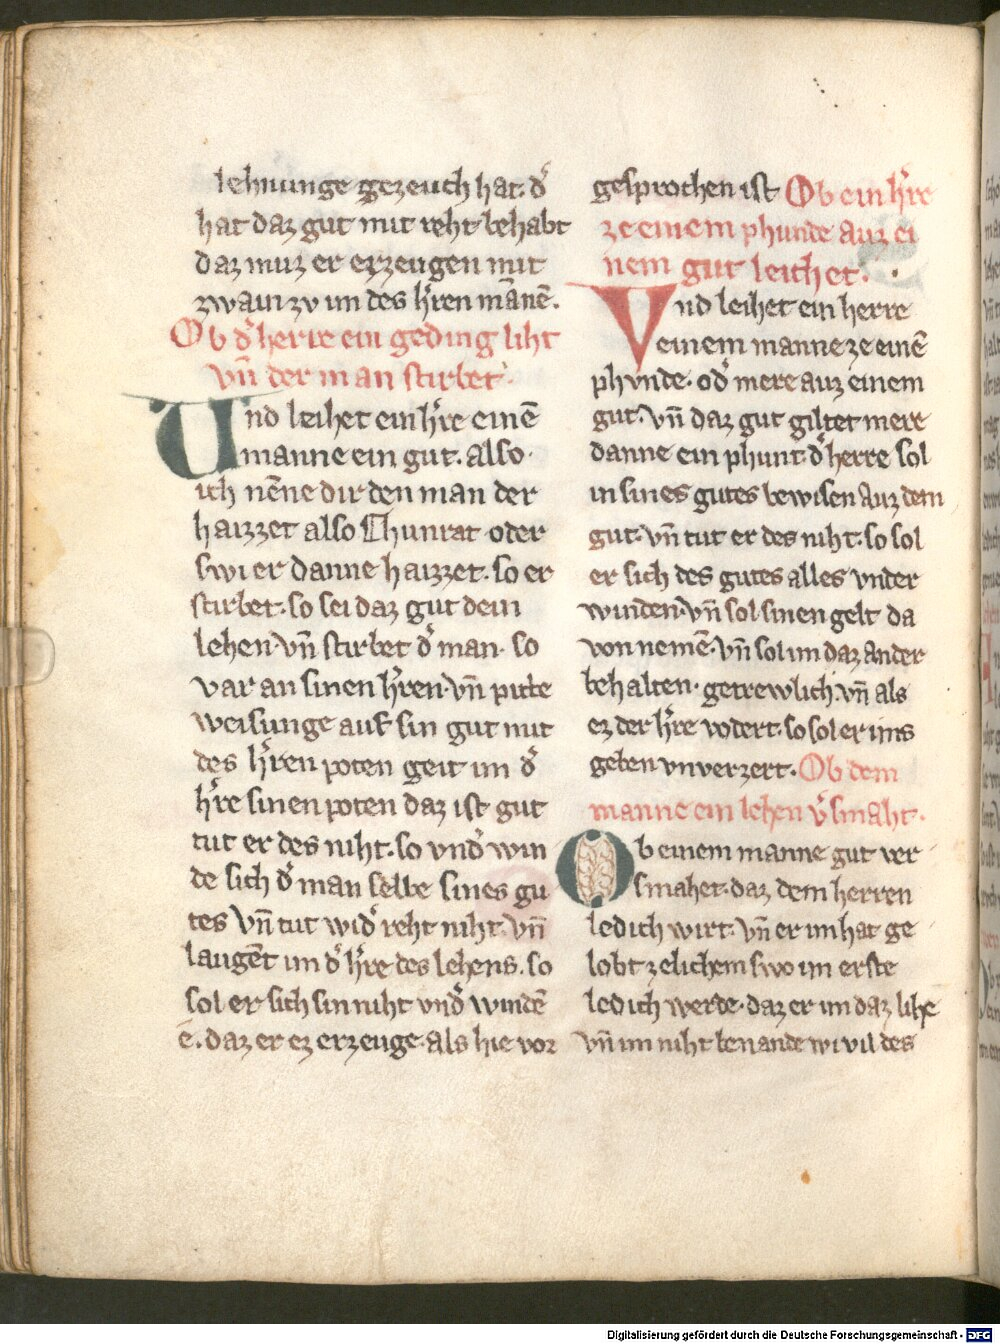 lehnunge gezeuch hat. d̾
hat daz gut mit reht behabt
daz muz er erzeugen mit
zwain zv im des h̾ren mānē.
Ob d̾ herre ein geding liht
vn̄ der man stirbet.
Und leihet ein h̾re einē
manne ein gut. also.
ich nēne dir den man der
haizzet also Chunrat oder
swi er danne haizzet. so er
stirbet. so sei daz gut dein
lehen. vn̄ stirbet d̾ man. so
var an sinen h̾ren. vn̄ pitte
weisunge auf sin gut mit
des h̾ren poten geit im d̾
h̾re sinen poten daz ist gut
tut er des niht. so vnd̾ win
de sich d̾ man selbe sines gu
tes vn̄ tut wid̾ reht niht. vn̄
laugēt im d̾ h̾re des lehens. so
sol er sich sin niht vnd̾ windē
ē. daz er ez erzeuge. als hie vor
gesprochen ist Ob ein h̾re
ze einem phunde auz ei
nem gut leichet.
Vnd leihet ein herre
einem manne ze einē
phvnde. od̾ mere auz einem
gut. vn̄ daz gut giltet mere
danne ein phunt. d̾ herre sol
in sines gutes bewisen auz dem
gut. vn̄ tut er des niht. so sol
er sich des gutes alles vnder
winden. vn̄ sol sinen gelt da
von nemē. vn̄ sol im daz ander
behalten. getrewlich. vn̄ als
ez der h̾re vodert. so sol er ims
geben vnverzert. Ob dem
manne ein lehen v̾smaht.
Ob einem manne gut ver
smahet. daz dem herren
ledich wirt. vn̄ er im hat ge
lobt zelichem swo im erste
ledich werde. daz er im daz lihe
vn̄ im niht benande wi vil des
Digitalisierung gefördert durch die Deutsche Forschungsgemeinschaft - DFG